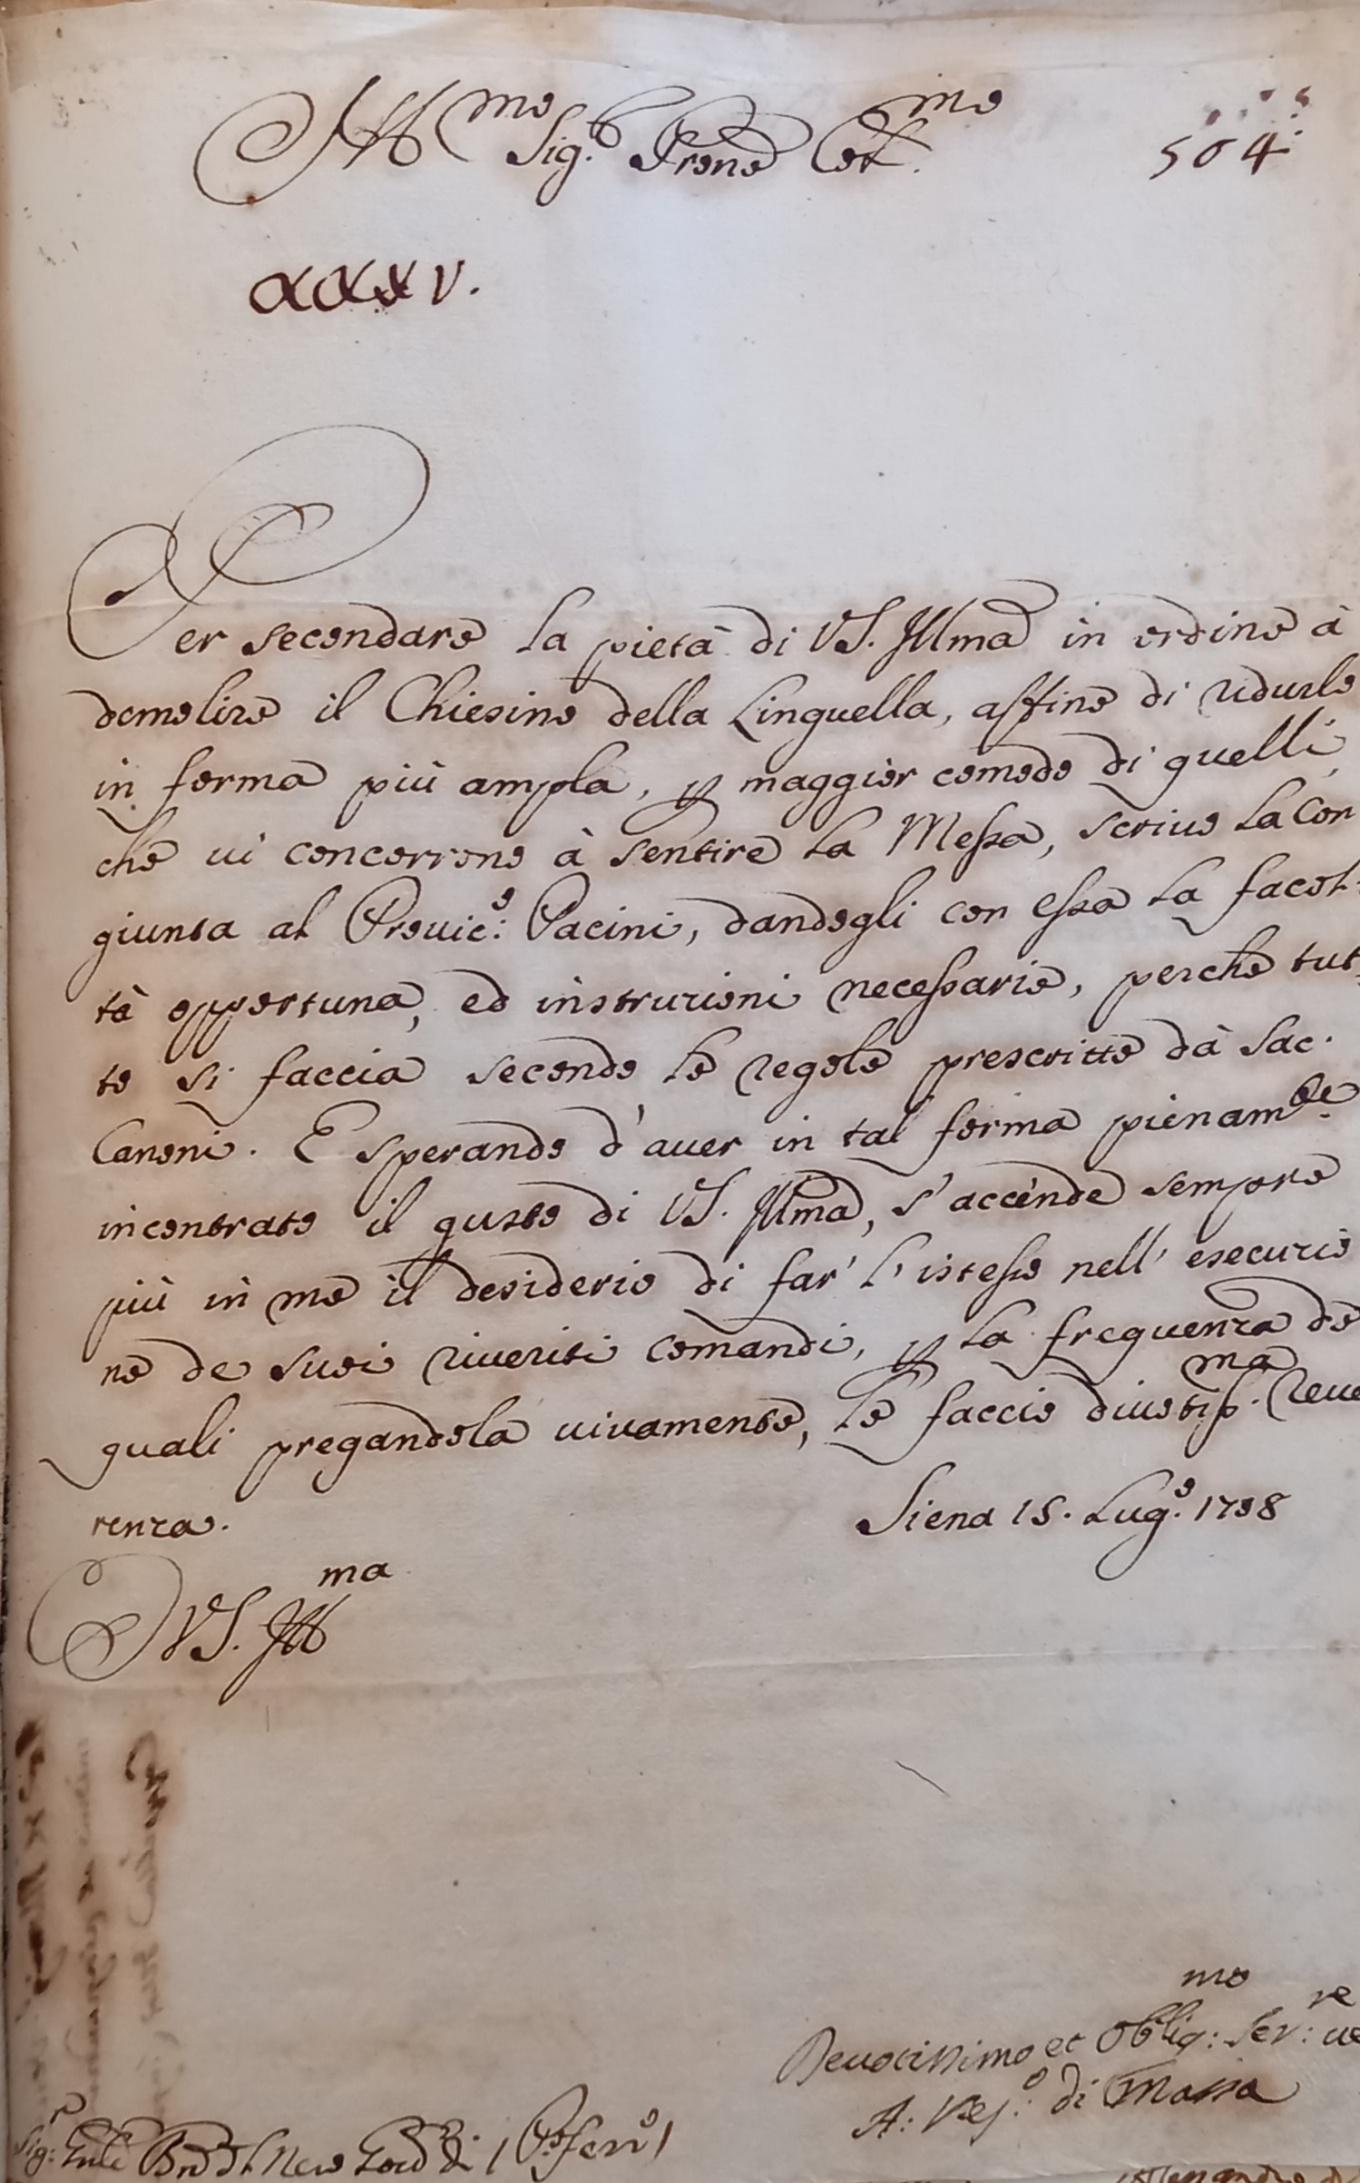 Ill.mo Sig.r Prone Col.mo
504
XXXV.
Per secondare la pietà di VS. Illma in ordine à
demolire il Chiesino della Linguella, affine di ridurlo
in forma più ampla, p maggior comodo di quelli,
che vi concorrono à sentire la Messa, scrivo la Con
giunta al Provic.o Pacini, dandogli con essa la facol:
tà opportuna, ed instruzioni necessarie, perche tut
to si faccia secondo le regole prescritte dà Sac.
Canoni. E sperando d'aver in tal forma pienam.te
incontrato il gusto di VS. Illma, s'accende sempre
più in me il desiderio di far' l'istesso nell' esecuzio
ne de suoi riveriti comandi, p la frequenza de
quali pregandola vivamente, le faccio divotiss.ma Reve
renza.
Siena 15. Lug.o 1738
VS. Ill.ma
Devotissimo et Oblig:mo Ser:re ve
A: Ves.o di Massa
Sig.r (Po Ferr.o)